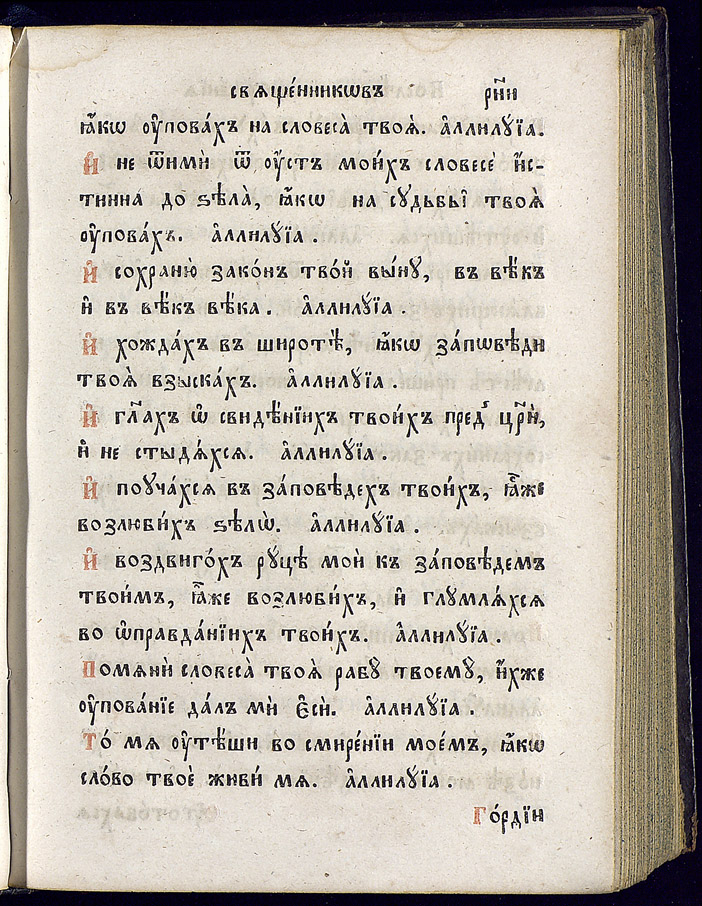 свѧще́нникѡвъ рн҃и
ꙗ҆́кѡ ᲂу҆пова́хъ на словеса̀ твоѧ̀. а҆ллилꙋ́їа.
И҆ не ѿимѝ ѿ ᲂу҆́стъ мои́хъ словесѐ и҆́с-
тинна до ѕѣла̀, ꙗ҆́кѡ на сꙋдьбы̑ твоѧ̀
ᲂу҆пова́хъ. а҆ллилꙋ́їа.
И҆ сохраню̀ зако́нъ тво́й вы́нꙋ, въ вѣ́къ
и҆ въ вѣ́къ вѣ́ка. а҆ллилꙋ́їа.
И҆ хожда́хъ въ широтѣ̀, ꙗ҆́кѡ за́пѡвѣди
твоѧ̀ взыска́хъ. а҆ллилꙋ́їа.
И҆ гл҃ахъ ѡ҆ свидѣ́нїихъ твои́хъ пред̾ цр҃и̑,
и҆ не стыдѧ́хсѧ. а҆ллилꙋ́їа.
И҆ поꙋча́хсѧ въ за́повѣдехъ твои́хъ, ꙗ҆̀же
возлюби́хъ ѕѣлѡ̀. а҆ллилꙋ́їа.
И҆ воздвиго́хъ рꙋцѣ̀ моѝ къ за́повѣдемъ
твои́мъ, ꙗ҆̀же возлюби́хъ, и҆ глꙋмлѧ́хсѧ
во ѡ҆правда́нїихъ твои́хъ. а҆ллилꙋ́їа.
Помѧнѝ словеса̀ твоѧ̀ рабꙋ̀ твоемꙋ̀, и҆́хже
ᲂу҆пова́нїе да́лъ мѝ є҆сѝ. а҆ллилꙋ́їа.
То́ мѧ ᲂу҆тѣ́ши во смире́нїи мое́мъ, ꙗ҆́кѡ
сло́во твоѐ живи́ мѧ. а҆ллилꙋ́їа.
Го́рдїи